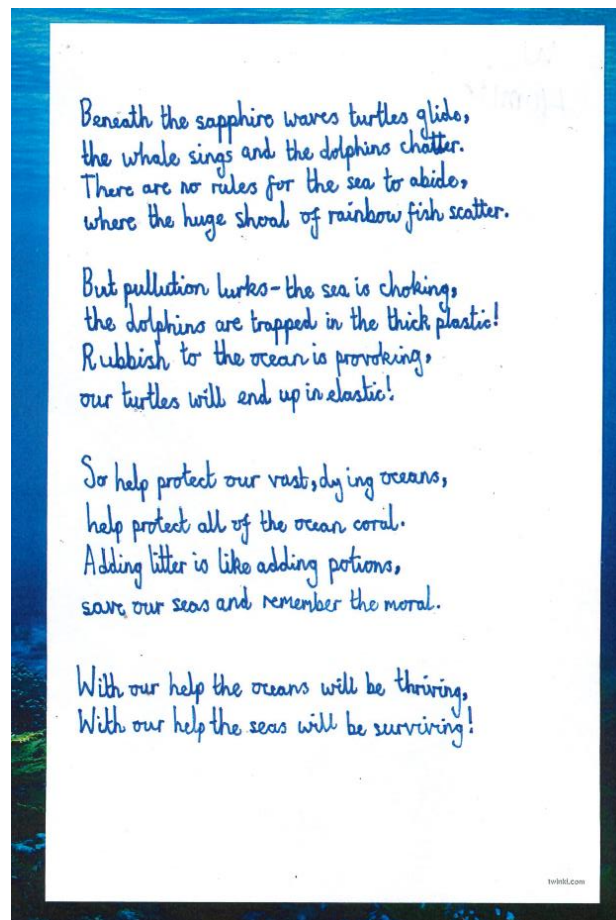 Beneath the sapphire waves turtles glide,
the whale sings and the dolphins chatter.
There are no rules for the sea to abide,
where the huge shoal of rainbow fish scatter.
But pullution lurks - the sea is choking,
the dolphins are trapped in the thick plastic!
Rubbish to the ocean is provoking,
our turtles will end up in elastic!
So help protect our vast, dying oceans,
help protect all of the ocean coral.
Adding litter is like adding potions,
save our seas and remember the moral.
With our help the oceans will be thriving,
With our help the seas will be surviving!
twinkl.com